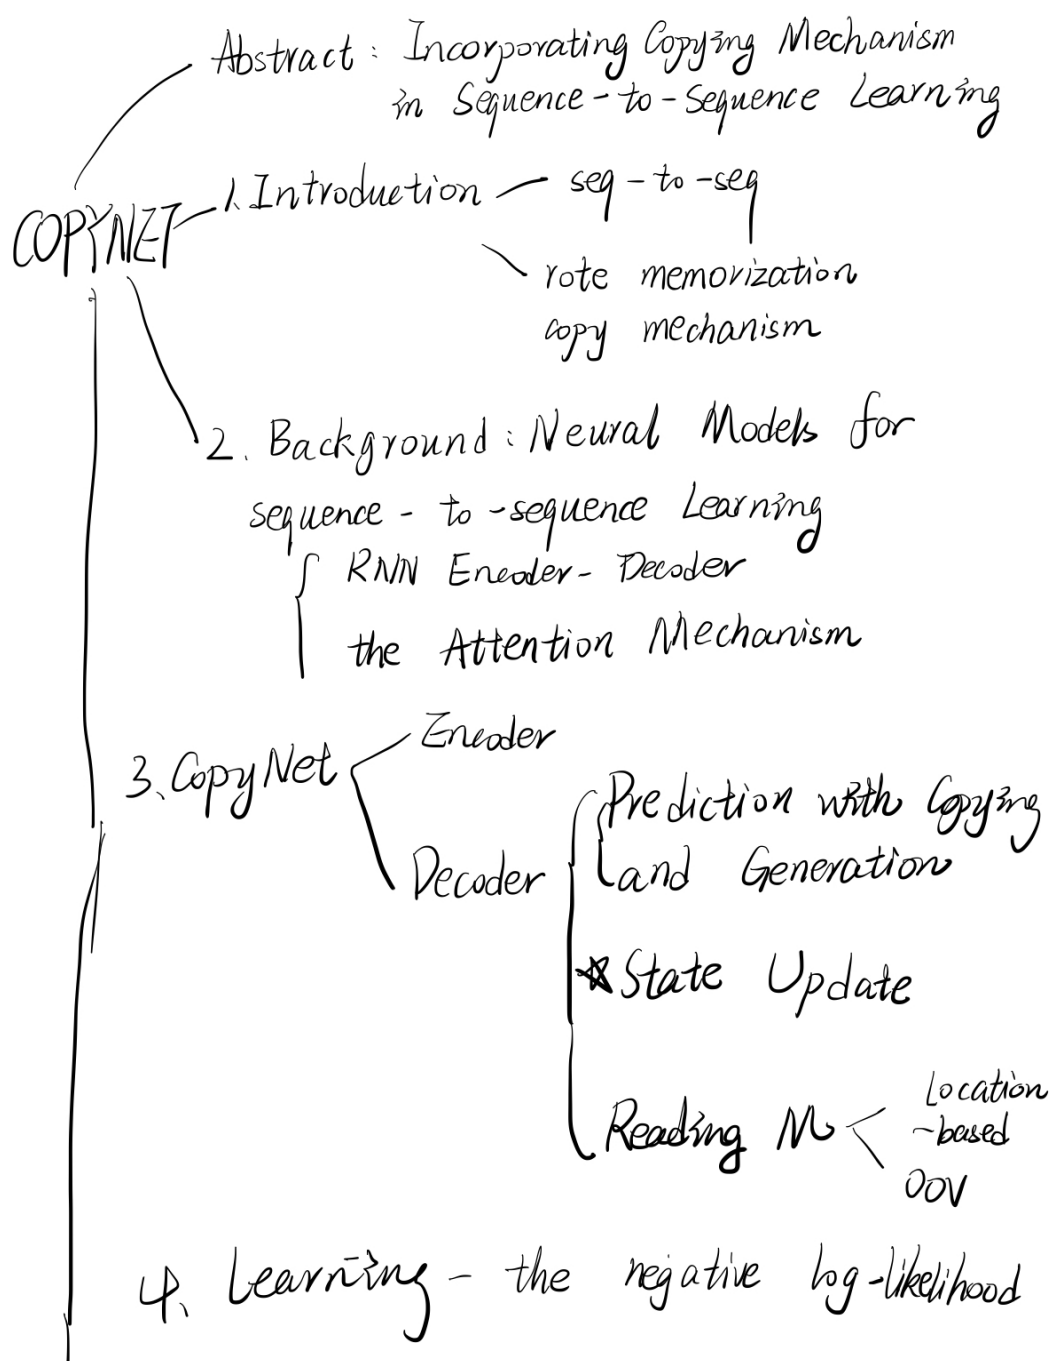 Abstract : Incorporating Copying Mechanism
in Sequence-to-Sequence Learning
COPYNET
1. Introduction
seq-to-seq
rote memorization
copy mechanism
2. Background : Neural Models for
sequence-to-sequence Learning
RNN Encoder-Decoder
the Attention Mechanism
3. CopyNet
Encoder
Decoder
Prediction with Copying
and Generation
State Update
Reading M
Location
-based
OOV
4. Learning - the negative log-likelihood